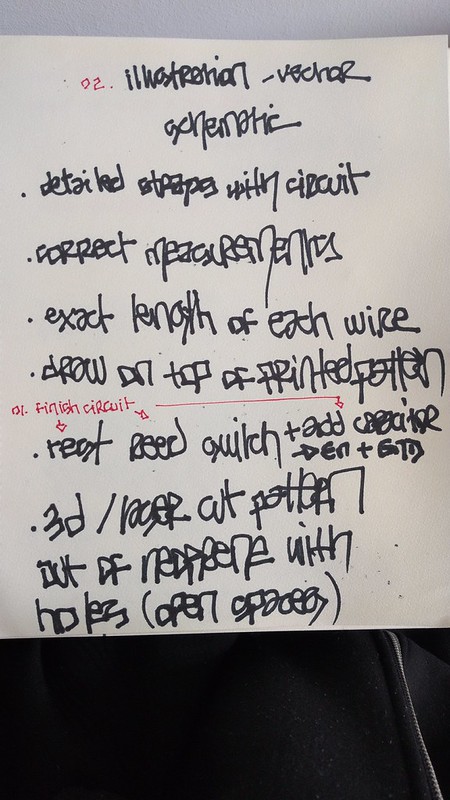 02. illustration - vector
schematic
. detailed straps with circuit
. correct measurements
. exact length of each wire
. draw on top of printed pattern
01. Finish circuit
. test reed switch + add capacitor
→ EN + GND
. 3d / laser cut pattern
out of neoprene with
holes (open spaces)